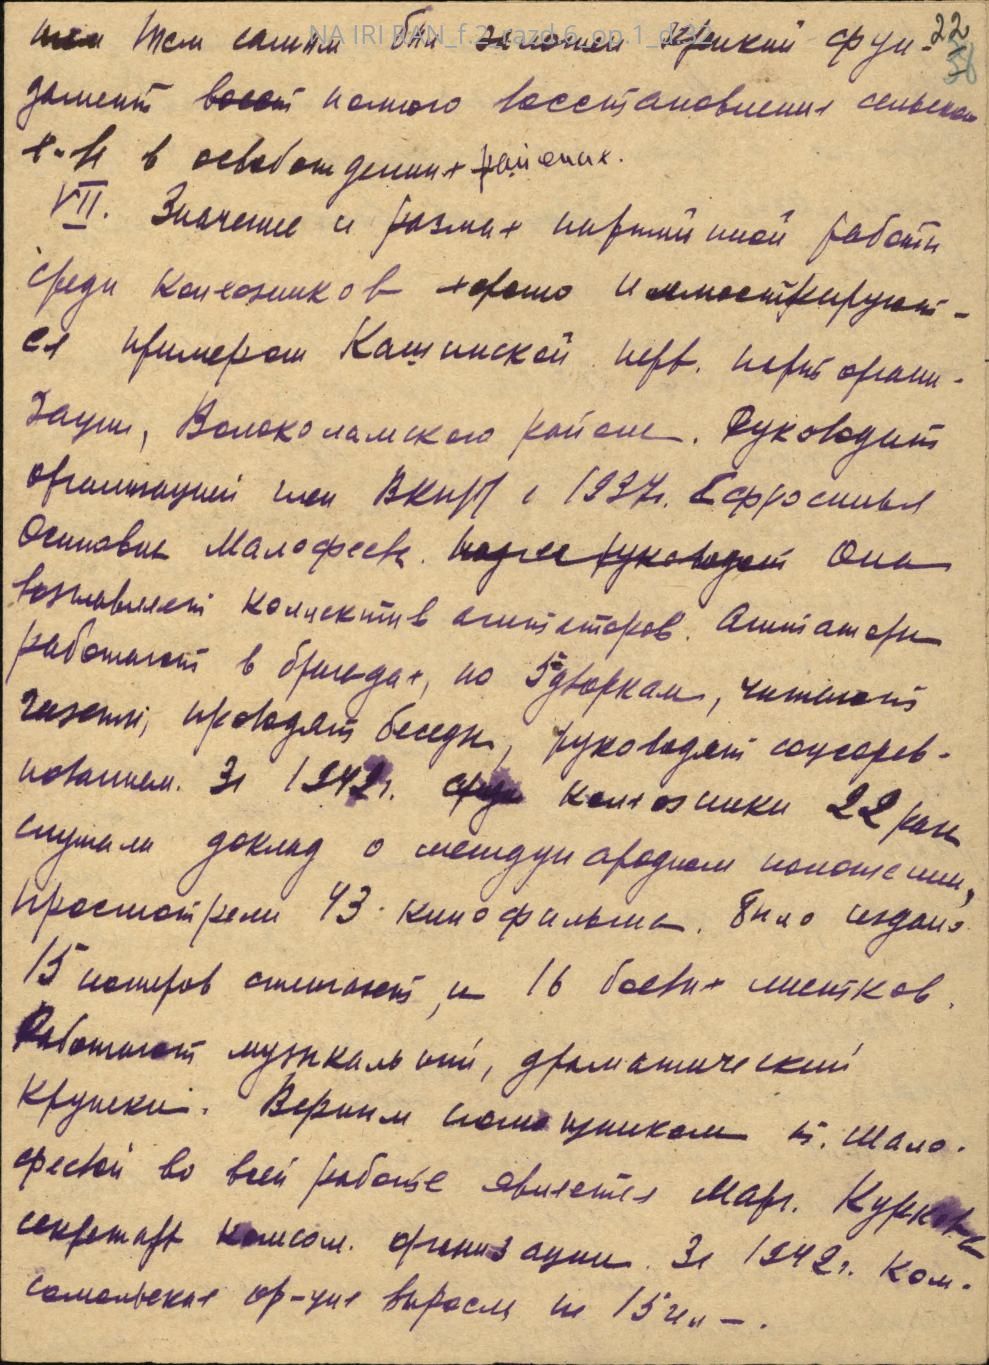 22
Тем самым был заложен крепкий фун-
дамент полного восстановления сельского
х-ва в освобожденных районах.
VII. Значение и размах партийной работы
среди колхозников хорошо иллюстрирует-
ся примером Кашинской перв. парторгани-
зации, Волоколамского района. Руководит
организацией член ВКП(б) с 1937г. Ефросинья
Осиповна Малофеева. Она
возглавляет коллектив агитаторов. Агитаторы
работают в бригадах, по 5дворкам, читают
газеты, проводят беседы, руководят соцсорев-
нованием. За 1942г. колхозники 22 раза
слушали доклад о международном положении,
просмотрели 43 кинофильма. Было издано
15 номеров стенгазет и 16 боевых листков.
Работают музыкальный, драматический
кружки. Верным помощником т. Мало-
феевой во всей работе является Марг. Куркова
секретарь комсом. организации. За 1942г. ком-
сомольская ор-ция выросла на 15 чел-.